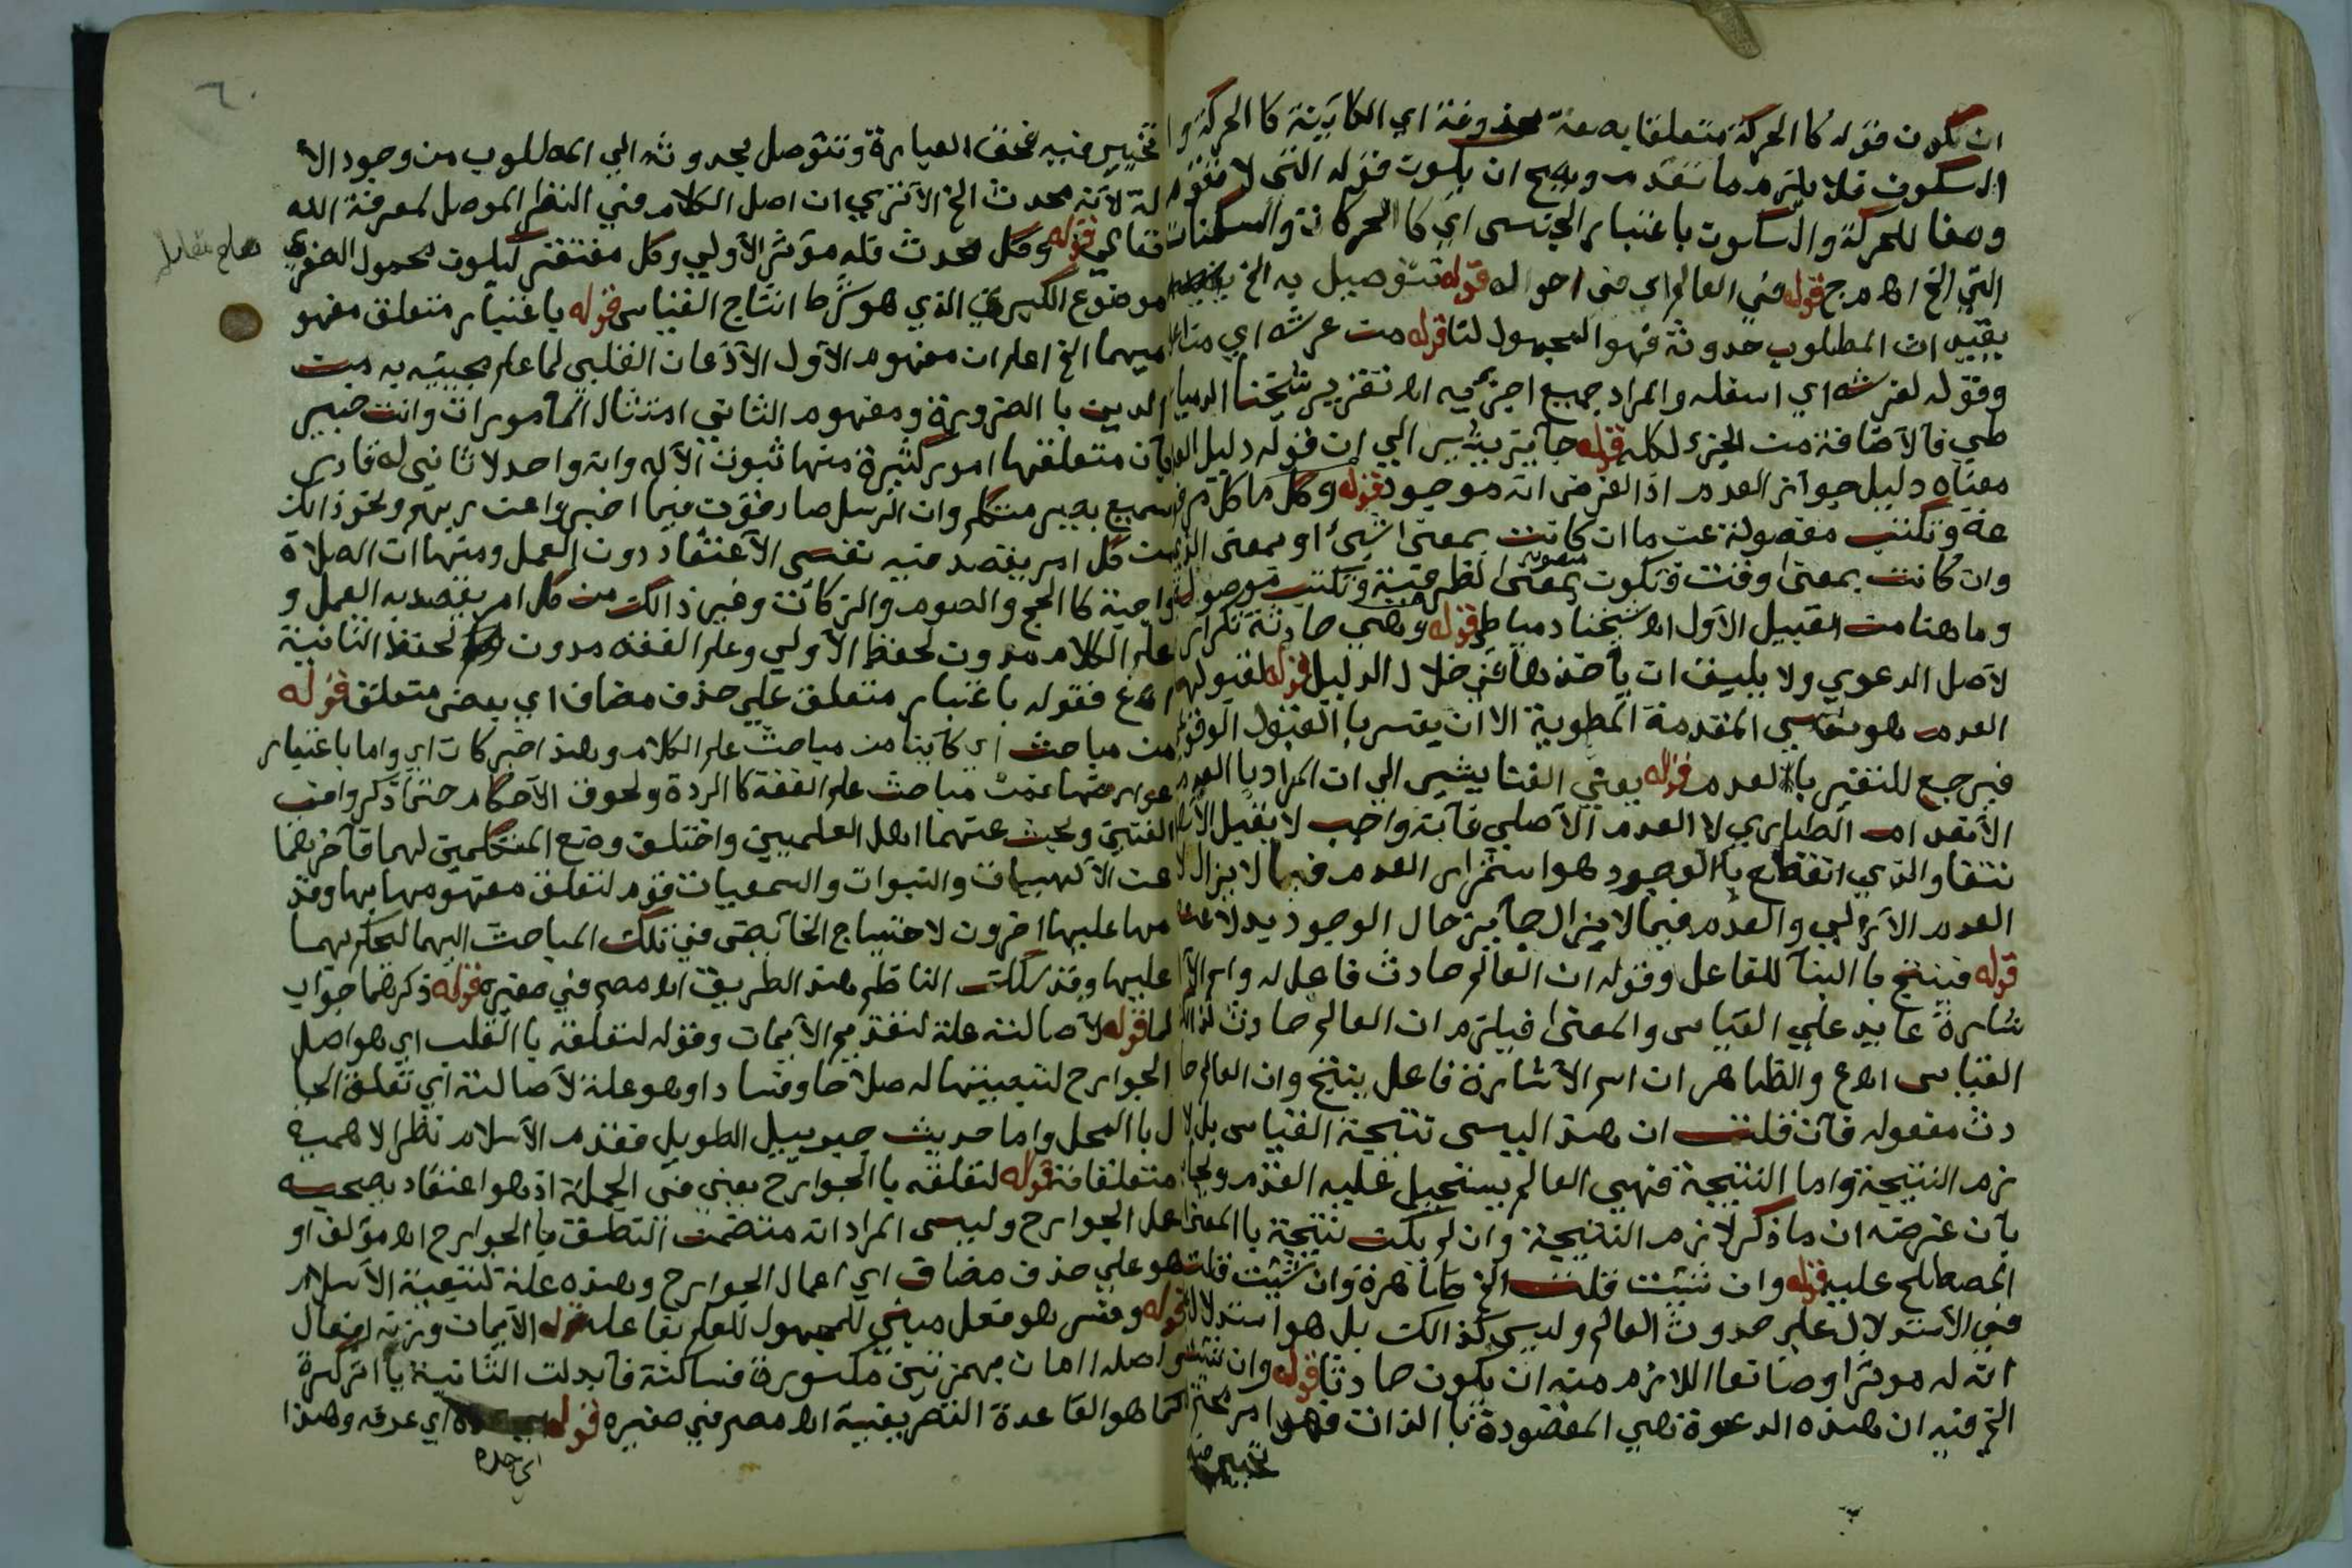 ان تكون قوله كا الحركة متعلقا بصفة محذوفة اي الكاينة كا الحركة وا
السكون فلا يلزم ما تقدم ويصح ان يكون قوله التي لا تقوم
وصفا للحركة والسكون باعتبار الجنس اي كا الحركات والسكنات
التي الخ اهـ مرج قوله في العالم اي في احواله قوله تتوصل به الخ
يقيد ان المطلوب حدوثه فهو المجهول لنا قوله من عرشه اي من اعلا
وقوله لفرشه اي اسفله والمراد جميع اجزايه اهـ تقرير شيخنا الدميا
طي فالاضافة من الجزء لكله قوله جايز يشير الي ان قوله دليل العدم
معناه دليل جواز العدم اذ الفرض انه موجود قوله وكل ما كلام
عة وتكتب مفصولة عن ما ان كانت بمعني شيء او بمعني الذي
وان كانت بمعني وقت وتكون لظرفية وتكتب موصولة
وما هنا من القبيل الاول اهـ شيخنا دمياطي قوله وهي حادثة تكرار
لاصل الدعوي ولا يليق ان ياخذها في خلال الدليل قوله لقبولهم
العدم هو نفس المقدمة المطوية الا ان يفسر با القبول الوقوع
فيرجع للتغير با العدم قوله يعني الفنا يشير الي ان المراد با العدم
الانعدام الطاري لا العدم الاصلي فانه واجب لا يقبل الا
نتفا والذي انقطع با الوجود هو استمرار العدم فيما لا يزال لا
العدم الازلي والعدم فيما لا يزال جايز حال الوجود بدلا عنه
قوله فينتج با البنا للفاعل وقوله ان العالم حادث فاعل له واسم الا
شارة عايد علي القياس والمعني فيلزم ان العالم حادث لذا
القياس اهـ ع والظاهر ان اسم الاشارة فاعل ينتج وان العالم حا
دث مفعوله فان قلت ان هذا ليس نتيجة القياس بل لا
زم النتيجة واما النتيجة فهي العالم يستحيل عليه القدم ويجاب
بان غرضه ان ما ذكر لازم النتيجة وان لم يكن نتيجة با المعني
المصطلح عليه قوله وان شيت قلت الخ ظاهره وان شيت قلت
في الاستدلال علي حدوث العالم وليس كذالك بل هو استدلال
انه له موثرا وصانعا اللازم منه ان يكون حادثا قوله وان شيت
الخ فيه ان هذه الدعوة هي المقصودة با الذات فهو امر محتم
تخيير فيه
٦٠
تخيير فيه مخفف العبارة وتتوصل بحدوثه الي المطلوب من وجود الا
له لانه محدث الخ الا تري ان اصل الكلام في النظر الموصل لمعرفة الله
تعالي قوله وكل محدث فله موثر الاولي وكل مفتقر ليكون محمول الصغري
موضوع الكبري الذي هو شرط انتاج القياس قوله باعتبار متعلق مفهو
ميهما الخ اعلم ان مفهوم الاول الاذعان القلبي لما علم مجييه به من
الدين با الضرورة ومفهوم الثاني امتثال المامورات وانت خبير
بان متعلقها امور كثيرة منها ثبوت الاله وانه واحد لا ثاني له قادر
سميع بصير متكلم وان الرسل صادقون فيما اخبروا عن ربهم ونحو ذالك
من كل امر يقصد فيه نفس الاعتقاد دون العمل ومنها ان الصلاة
واجبة كا الحج والصوم والزكات وغير ذالك من كل امر يقصد به العمل و
علم الكلام مدون لحفظ الاولي وعلم الفقه مدون لحفظ الثانية
اهـ ع فقوله باعتبار متعلق علي حذف مضاف اي بعض متعلق قوله
من مباحث اي كاينا من مباحث علم الكلام وهذا خبر كان اي واما باعتبار
عوارضهما فمن مباحث علم الفقه كا الردة ولحوق الاحكام حتي ذكروا في
الفنين وبحث عنهما اهل العلمين واختلف وضع المتكلمين لهما فاخرهما
عن الالهيات والنبوات والسمعيات قوم لتعلق مفهومهما بها وقد
مها عليها اخرون لاحتياج الخايض في تلك المباحث اليهما ليحكم بهما
عليها وقد سلك الناظم هذا الطريق اهـ مصم في صغيره قوله ذكرهما جواب
لما قوله لاصالته علة لتقديم الايمان وقوله لتعلقه با القلب اي هو اصل
الجوارح لتبعيتها له صلاحا وفسادا وهو علة لاصالته اي تعلق الحا
ل با المحل واما حديث جبرييل الطويل فقدم الاسلام نظرا لاهمية
متعلقاته قوله لتعلقه با الجوارح يعني في الجملة اذ هو اعتقاد بصحية
عمل الجوارح وليس المراد انه منتضمن التعلق با الجوارح اهـ مولف او
هو علي حذف مضاف اي اعمال الجوارح وهذه علة لتبعية الاسلام
قوله وفسر هو فعل مبني للمجهول للعلم بفاعله قوله الايمان وزنه افعال
اصله اامان بهمزتين مكسورة فساكنة فابدلت الثانية ياا اثر كسرة
كما هو القاعدة التصريفية اهـ مصم في صغيره قوله اي عرفه وهذا